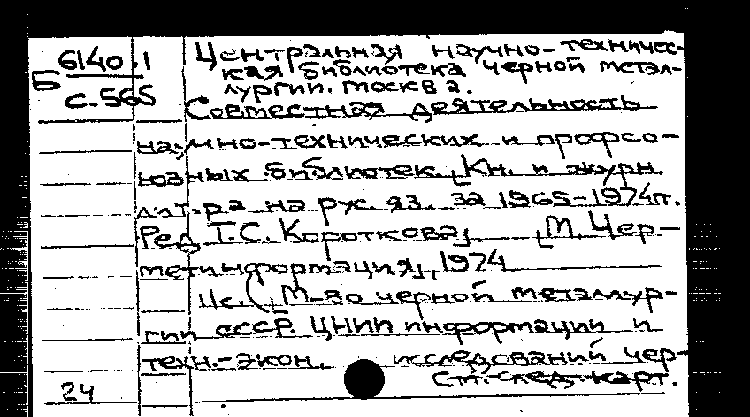 6140.1 Центральная научно-техничес-
Б кая библиотека черной метал-
с.565 лургии. Москва.
Совместная деятельность
научно-технических и профсо-
юзных библиотек. [Кн. и журн.
лит-ра на рус. яз. за 1965-1974гг.
Ред. Т.С. Короткова]. [М. Чер-
метинформация], 1974
11с. (М-во черной металлур-
гии СССР. ЦНИИ информации и
техн.-экон. исследований чер-
См. след. карт.
24